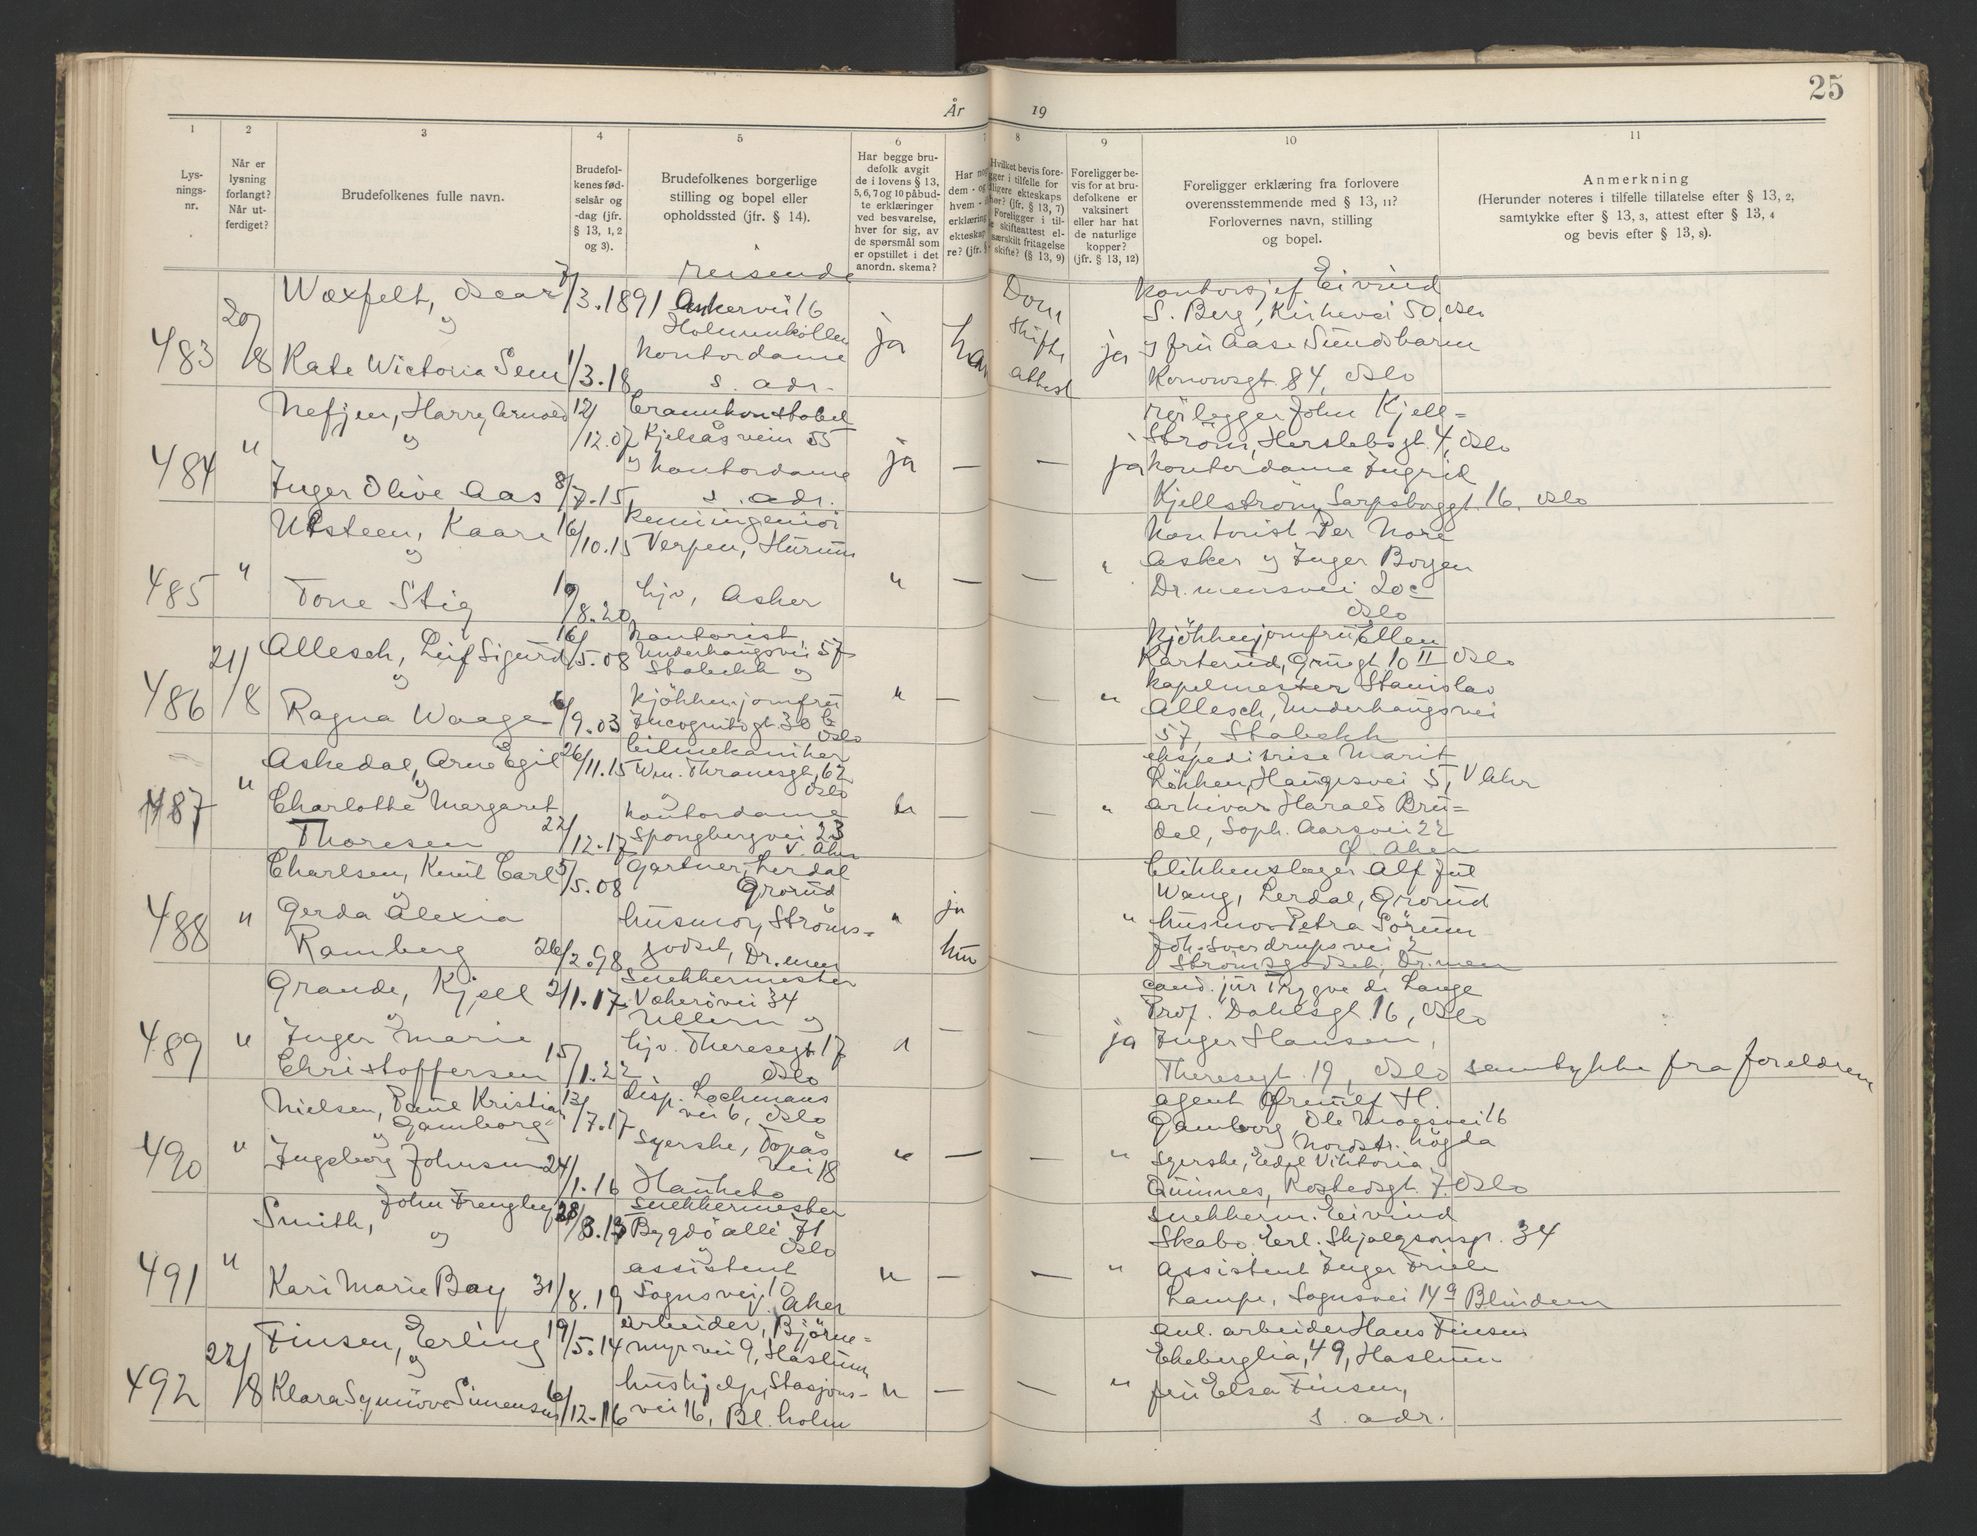 25
År 19
1 2 3 4 5 6 7 8 9 10 11
Lys-
nings-
nr.
Når er
lysning
forlangt?
Når ut-
ferdiget?
Brudefolkenes fulle navn.
Brudefol-
kenes fød-
selsår og
-dag (jfr.
§ 13, 1, 2
og 3).
Brudefolkenes borgerlige
stilling og bopel eller
opholdssted (jfr. § 14).
Har begge bru-
defolk avgit
de i lovens § 13,
5, 6, 7 og 10 påbud-
te erklæringer
ved besvarelse,
hver for sig, av
de spørsmål som
er opstillet i det
anordn. skema?
Har no
dem - og
hvem -
erklæring
ekteskap
re? (jfr. §
Hvilket bevis fore-
gger i tilfelle for
dligere ekteskaps
hør? (jfr. § 13, 7)
Foreligger i til-
e skifteattest el-
særskilt fritagelse
skifte? (§ 13, 9)
Foreligger be-
vis for at bru-
defolkene er
vaksinert
eller har hat
de naturlige
kopper?
(jfr. § 13, 12)
Foreligger erklæring fra forlovere
overensstemmende med § 13, 11?
Forlovernes navn, stilling
og bopel.
Anmerkning
(Herunder noteres i tilfelle tillatelse efter § 13, 2,
samtykke efter § 13, 3, attest efter § 13, 4
og bevis efter § 13, 8).
483
20/8
Woxfelt, Oscar 7/3.1891
og
Kate Wictoria Sem 1/3.18
reisende
Ankervei 16
Holmenkollen
kontordame
s. adr.
ja
han
Dom
skifte
attest
ja
kontorsjef Eivind
S. Berg, Kirkevei 50, Oslo
og fru Aase Sundbarm
Konowsgt. 84, Oslo
484
"
Nefjen, Harry Arnold 12/12.07
og
Inger Olive Aas 8/7.15
brannkonstabel
Kjelsåsveien 55
og kontordame
s. adr.
ja
—
—
ja
rørlegger John Kjell=
strøm, Herslebsgt. 4, Oslo
kontordame Ingrid
Kjellstrøm, Sarpsborggt. 16, Oslo
485
"
Ulsteen, Kaare 16/10.15
og
Tone Stig 19/8.20
kemiingeniør
Verpen, Hurum
hjv, Asker
"
—
—
"
kontorist Per Nore
Asker og Inger Boyen
Dr.mensvei 20c
Oslo
486
21/8
Allesch, Leif Sigurd 16/5.08
og
Ragna Waage 6/9.03
kontorist,
Underhaugsvei 57
Stabekk og
kjøkkenjomfru
Incognitogt. 30 b
Oslo
"
—
—
"
Kjøkkenjomfru Ellen
Karterud, Grugt. 10 II Oslo
kapelmester Stanislav
Allesch, Underhaugsvei
57, Stabekk
487
"
Askedal, Arne Egil 26/11.15
og
Charlotte Margaret
Thoresen 22/12.17
bilmekaniker
Wm. Thranesgt. 62
Oslo
og
kontordame
Spongbergvei 23
V. Aker
"
—
—
"
ekspeditrise Marit
Løkken, Haugesvei 5, V Akr
arkivar Harald Bru=
del, Soph. Aarsvei 22
Ø Aker
488
"
Charlsen, Knut Carl 5/5.08
og
Gerda Alexia
Ramberg 26/2.98
Gartner, Lerdal
Grorud
husmor, Strøms=
godset, Dr.men
"
ja
hun
"
blikkenslager Alf Jul
Wang, Lerdal, Grorud
husmor Petra Sørum
Joh. Sverdrupsvei 2
Strømsgodset, Dr.men
489
"
Grande, Kjell 2/1.17
og
Inger Marie
Christoffersen 15/1.22
Snekkermester
Vækerøvei 34
Ullern og
hjv. Theresegt 17
Oslo
"
—
—
ja
cand. jur Trygve de Lange
Prof. Dahlsgt. 16, Oslo
Inger Hansen,
Theresegt. 19, Oslo
samtykke fra foreldrene
490
"
Nielsen, Paul Kristian 13/7.17
Gamborg
og
Ingeborg Johnsen 24/1.16
disp. Lochmans
vei 6, Oslo
syerske, Topås
vei 18
Hauketo
"
—
—
"
agent Arnulf H.
Gamborg, Ole Moesvei 16
Nordstr. høgda
syerske, Edel Viktoria
Quinnes, Rostedsgt. 7, Oslo
491
"
Smith, John Frengley 28/3.13
og
Kari Marie Bay 31/8.19
snekkermester
Bygdø allé 71
og Oslo
assistent
Sognsvei, 10
Aker
"
—
—
"
snekkerm. Eivind
Skabo Erl. Skjalgsonsgt. 34
Assistent Inger Friele
Lampe, Sognsvei 14a Blindern
492
22/8
Finsen, Erling 19/5.14
og
Klara Synnøve Simensen 6/12.16
arbeider, Bjørne=
myrvei 9, Haslum
hushjelp, Stasjons-
vei 16, Bl.holm
"
—
—
"
anl. arbeider Hans Finsen
Ekeberglia, 49, Haslum
fru Elsa Finsen,
s. adr.